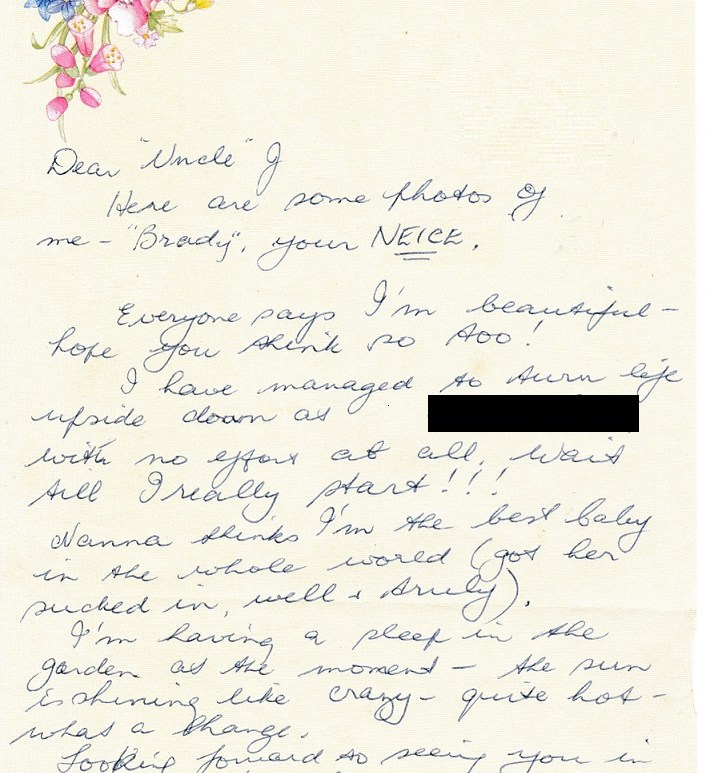 Dear "Uncle" J
Here are some photos of
me - "Brady", your NEICE.
Everyone says I'm beautiful -
hope you think so too!
I have managed to turn life
upside down at
with no effort at all. Wait
till I really start!!!
Nanna thinks I'm the best baby
in the whole world (got her
sucked in, well & truly).
I'm having a sleep in the
garden at the moment - the sun
is shining like crazy - quite hot -
what a change.
Looking forward to seeing you in